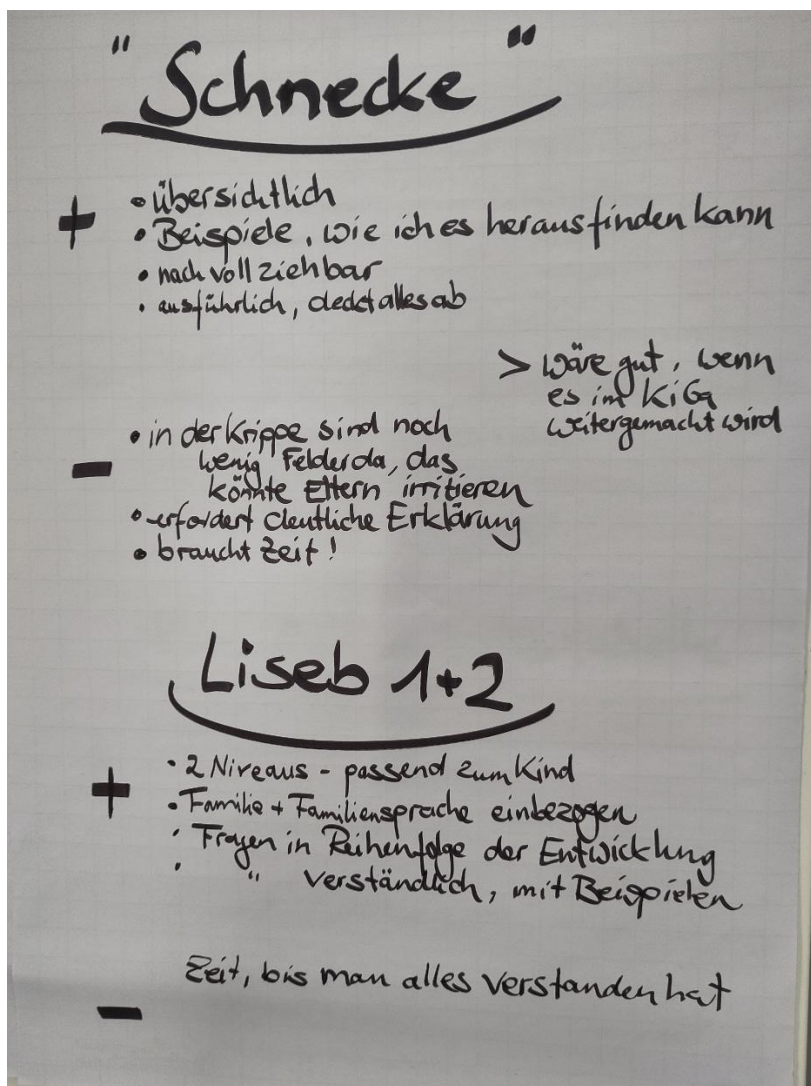 "Schnecke"
+ • übersichtlich
• Beispiele, wie ich es herausfinden kann
• nachvollziehbar
• ausführlich, deckt alles ab
> wäre gut, wenn
es im KiGa
weitergemacht wird
- • in der Krippe sind noch
wenig Felder da, das
könnte Eltern irritieren
• erfordert deutliche Erklärung
• braucht Zeit!
Liseb 1+2
+ • 2 Niveaus - passend zum Kind
• Familie + Familiensprache einbezogen
• Fragen in Reihenfolge der Entwicklung
• " verständlich, mit Beispielen
Zeit, bis man alles verstanden hat
-